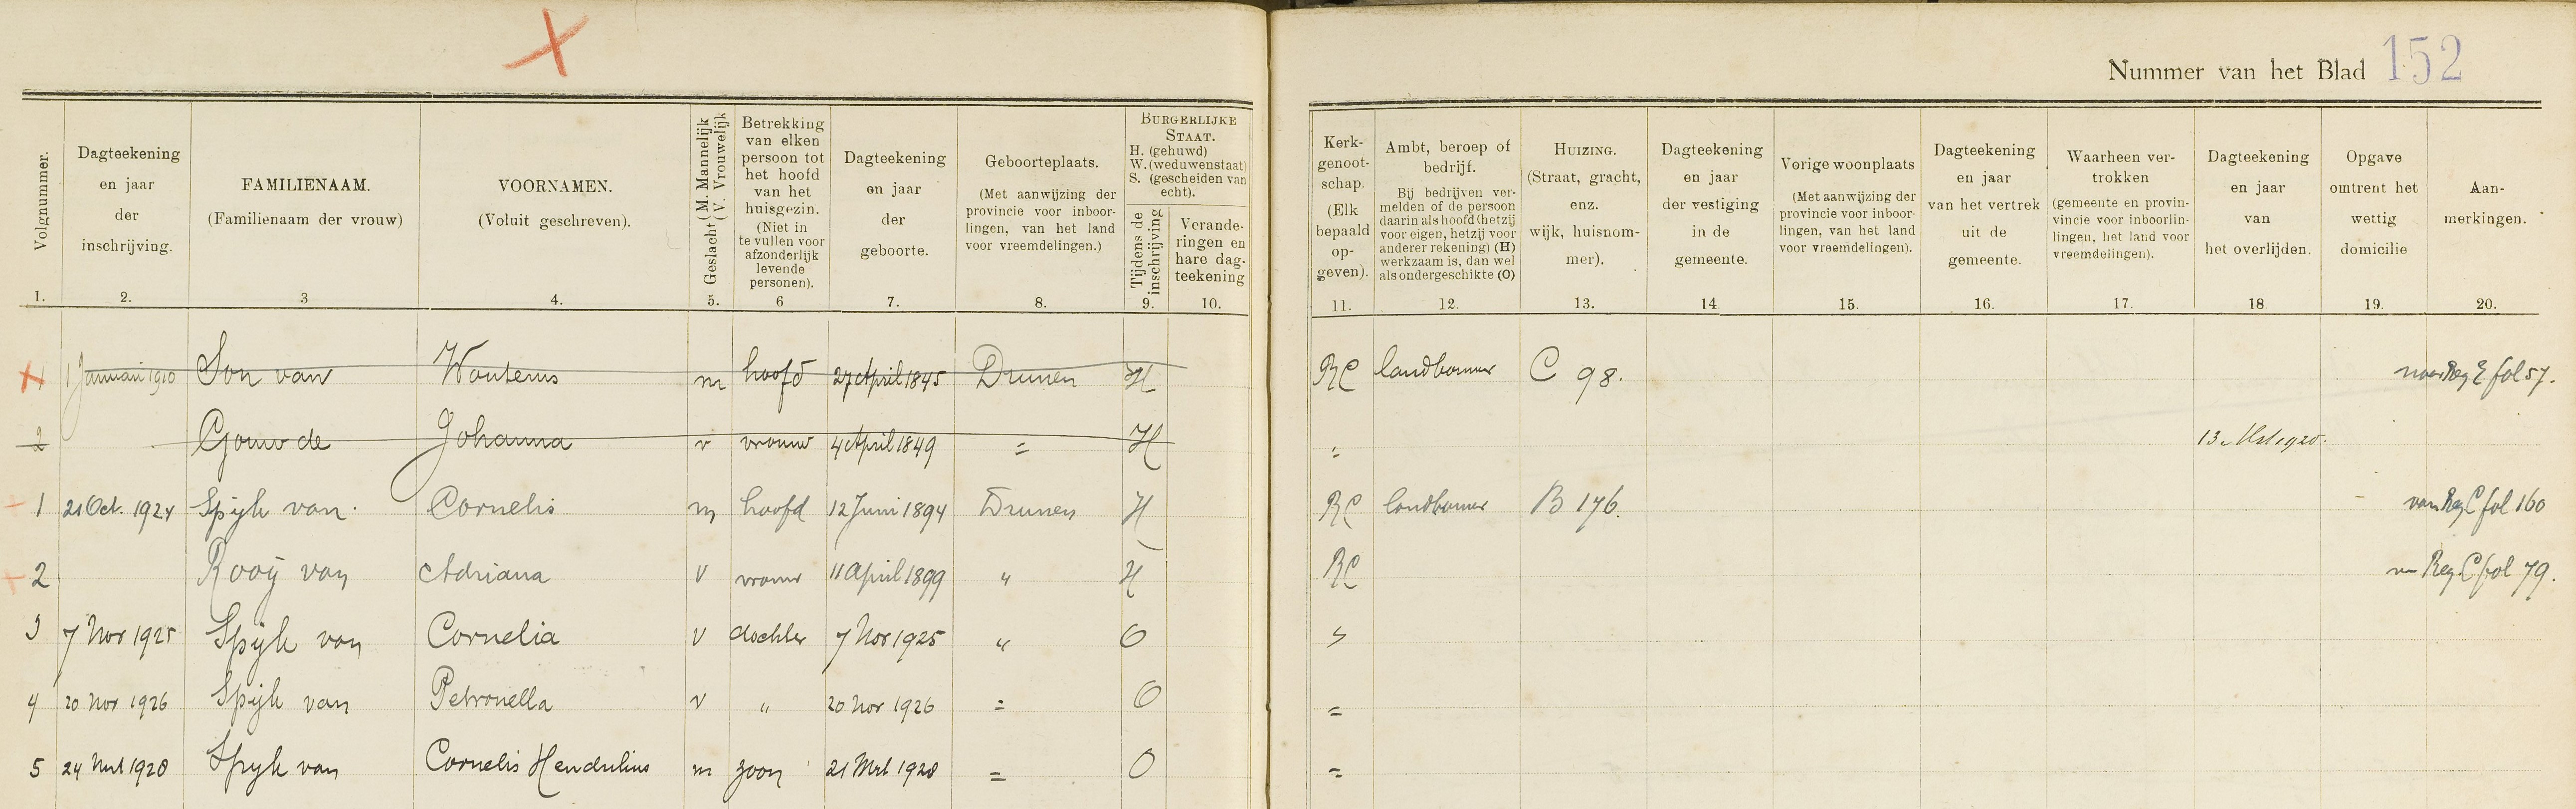 Nummer van het Blad 152
Volgnummer. 1.
Dagteekening en jaar der inschrijving. 2.
FAMILIENAAM. (Familienaam der vrouw) 3
VOORNAMEN. (Voluit geschreven). 4.
Geslacht (M. Mannelijk (V. Vrouwelijk 5.
Betrekking van elken persoon tot het hoofd van het huisgezin. (Niet in te vullen voor afzonderlijk levende personen). 6
Dagteekening en jaar der geboorte. 7.
Geboorteplaats. (Met aanwijzing der provincie voor inboorlingen, van het land voor vreemdelingen.) 8.
BURGERLIJKE STAAT. H. (gehuwd) W. (weduwenstaat) S. (gescheiden van echt).
Tijdens de inschrijving 9.
Veranderingen en hare dagteekening 10.
Kerkgenootschap. (Elk bepaald opgeven). 11.
Ambt, beroep of bedrijf. Bij bedrijven vermelden of de persoon daarin als hoofd (hetzij voor eigen, hetzij voor anderer rekening) (H) werkzaam is, dan wel als ondergeschikte (O) 12.
HUIZING. (Straat, gracht, enz. wijk, huisnommer). 13.
Dagteekening en jaar der vestiging in de gemeente. 14
Vorige woonplaats (Met aanwijzing der provincie voor inboorlingen, van het land voor vreemdelingen). 15.
Dagteekening en jaar van het vertrek uit de gemeente. 16.
Waarheen vertrokken (gemeente en provincie voor inboorlingen, het land voor vreemdelingen). 17.
Dagteekening en jaar van het overlijden. 18.
Opgave omtrent het wettig domicilie 19.
Aanmerkingen. 20.
1 1 Januari 1910 Son van Wouterus m hoofd 27 April 1845 Drunen H RC landbouwer C 98. naar Reg E fol 57.
2 Gouw de Johanna v vrouw 4 April 1849 = H " 13 Mrt 1920.
1 21 Oct. 1924 Spijk van Cornelis m hoofd 12 Juni 1894 Drunen H RC landbouwer B 176. van Reg C fol 160
2 Rooij van Adriana v vrouw 11 April 1899 " H RC Reg. C fol 79.
3 7 Nov 1925 Spijk van Cornelia v dochter 7 Nov 1925 " O "
4 20 Nov 1926 Spijk van Petronella v " 20 Nov 1926 = O =
5 24 Mrt 1928 Spijk van Cornelis m zoon 21 Mrt 1928 = O =